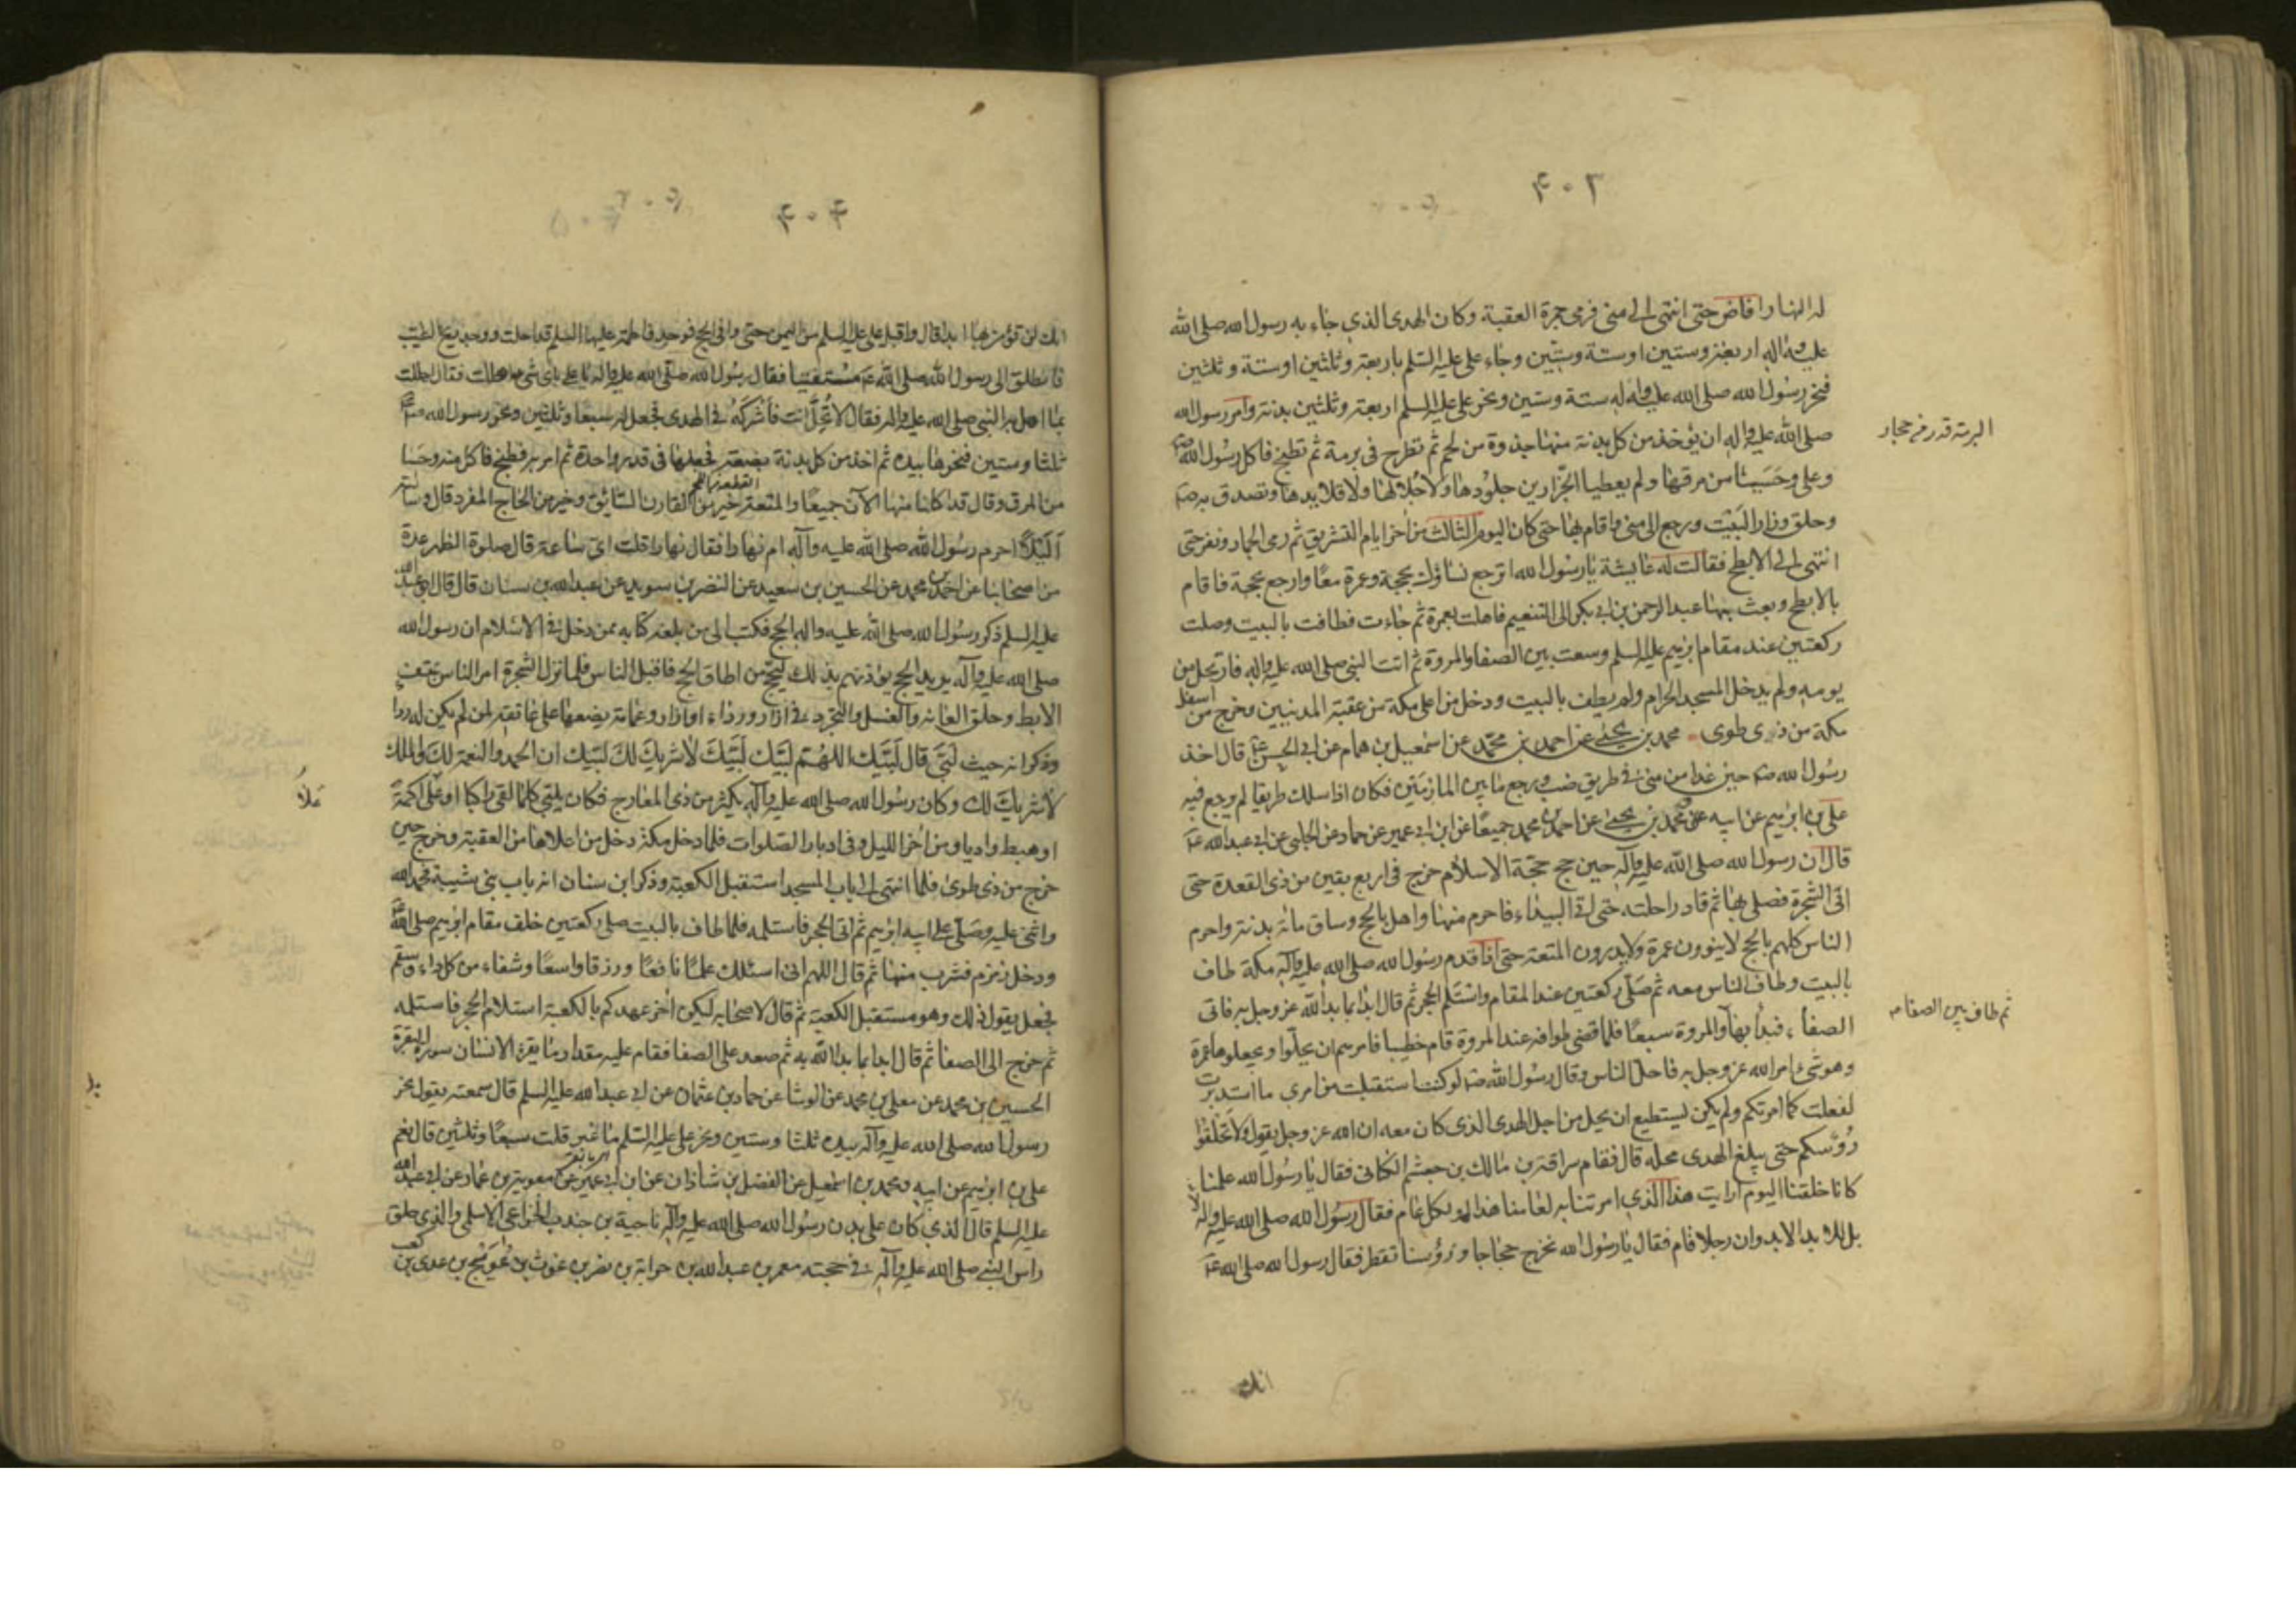 ۴۰۲
له النهار وافاض حتى انتهى الى منى فرمى جمرة العقبة وكان الهدى الذى جاء به رسول الله صلى الله
عليه واله اربعة وستين او ستة وستين وجاء على عليه السلم باربعة وثلثين او ستة وثلثين
فنحر رسول الله صلى الله عليه واله ستة وستين ونحر على عليه السلم اربعة وثلثين بدنة وامر رسول الله
صلى الله عليه واله ان يؤخذ من كل بدنة منها جذوة من لحم ثم تطرح فى برمة ثم تطبخ فاكل رسول الله ص
البرمة قدر من حجار
وعلى وحسيا من مرقها ولم يعطيا الجزارين جلودها ولا جلالها ولا قلايدها وتصدق به ص
وحلق وزار البيت ورجع الى منى واقام بها حتى كان اليوم الثالث من اخر ايام التشريق ثم رمى الجمار ونفر حتى
انتهى الى الابطح فقالت له عايشة يا رسول الله اترجع نساؤك بحجة وعمرة معا وارجع بحجة فاقام
بالابطح وبعث بها عبد الرحمن بن ابى بكر الى التنعيم فاهلت بعمرة ثم جاءت فطافت بالبيت وصلت
ركعتين عند مقام ابرهيم عليه السلم وسعت بين الصفا والمروة ثم اتت النبى صلى الله عليه واله فارتحل من
يومه ولم يدخل المسجد الحرام ولم يطف بالبيت ودخل من اعلى مكة من عقبة المدنيين وخرج من اسفل
مكة من ذى طوى محمد بن يحيى عن احمد بن محمد عن اسمعيل بن همام عن ابى الحسن ع قال اخذ
رسول الله ص حين غدا من منى فى طريق ضب ورجع ما بين المازمين فكان اذا سلك طريقا لم يرجع فيه
على بن ابرهيم عن ابيه ومحمد بن يحيى عن احمد بن محمد جميعا عن ابن ابى عمير عن حماد عن الحلبى عن ابى عبد الله ع
قال ان رسول الله صلى الله عليه وآله حين حج حجة الاسلام خرج فى اربع بقين من ذى القعدة حتى
اتى الشجرة فصلى بها ثم قاد راحلته حتى اتى البيداء فاحرم منها واهل بالحج وساق مائة بدنة واحرم
الناس كلهم بالحج لا ينوون عمرة ولا يدرون المتعة حتى اذا قدم رسول الله صلى الله عليه وآله مكة طاف
بالبيت وطاف الناس معه ثم صلى ركعتين عند المقام واستلم الحجر ثم قال ابدا بما بدأ الله عز وجل به فاتى
ثم طاف بين الصفا
الصفا فبدأ بها والمروة سبعا فلما قضى طوافه عند المروة قام خطيبا فامرهم ان يحلوا ويجعلوها عمرة
وهو شىء امر الله عز وجل به فاحل الناس وقال رسول الله ص لو كنت استقبلت من امرى ما استدبرت
لفعلت كما امرتكم ولم يكن يستطيع ان يحل من اجل الهدى الذى كان معه ان الله عز وجل يقول ولا تحلقوا
رؤسكم حتى يبلغ الهدى محله قال فقام سراقة بن مالك بن جعشم الكنانى فقال يا رسول الله علمنا
كانا خلقنا اليوم ارايت هذا الذى امرتنا به لعامنا هذا او لكل عام فقال رسول الله صلى الله عليه واله لا
بل للابد الابد وان رجلا قام فقال يا رسول الله نخرج حجاجا ورؤسنا تقطر فقال رسول الله صلى الله ع
انك
۴۰۴
انك لن تؤمن بهذا ابدا قال واقبل على عليه السلم من اليمن حتى وافى الحج فوجد فاطمة عليها السلم قد احلت ووجد ريح الطيب
فانطلق الى رسول الله صلى الله ع مستفتيا فقال رسول الله صلى الله عليه واله يا على باى شىء اهللت فقال اهللت
بما اهل به النبى صلى الله عليه واله فقال لا تحل انت فاشركه فى الهدى فجعل له سبعا وثلثين ونحر رسول الله ص
ثلثا وستين فنحرها بيده ثم اخذ من كل بدنة بضعة فجعلها فى قدر واحدة ثم امر به فطبخ فاكل منه وحسا
من المرق وقال قد اكلنا منها الآن جميعا والمتعة خير من القارن السائق وخير من الحاج المفرد قال وسالته
أليلا احرم رسول الله صلى الله عليه وآله ام نهارا فقال نهارا قلت اى ساعة قال صلوة الظهر عدة
من اصحابنا عن احمد بن محمد عن الحسين بن سعيد عن النضر بن سويد عن عبد الله بن سنان قال قال ابو عبد الله
عليه السلم ذكر رسول الله صلى الله عليه واله الحج فكتب الى من بلغه كتابه ممن دخل فى الاسلام ان رسول الله
صلى الله عليه وآله يريد الحج يؤذنهم بذلك ليحج من اطاق الحج فاقبل الناس فلما نزل الشجرة امر الناس بنتف
الابط وحلق العانة والغسل والتجرد فى ازار ورداء او ازار وعمامة يضعها على عاتقه لمن لم يكن له ردا
وذكر انه حيث لبى قال لبيك اللهم لبيك لبيك لا شريك لك لبيك ان الحمد والنعمة لك والملك
لا شريك لك وكان رسول الله صلى الله عليه وآله يكثر من ذى المعارج فكان يلبى كلما لقى راكبا او علا اكمة
علا
او هبط واديا ومن اخر الليل وفى ادبار الصلوات فلما دخل مكة دخل من اعلاها من العقبة وخرج حين
خرج من ذى طوى فلما انتهى الى باب المسجد استقبل الكعبة وذكر ابن سنان انه باب بنى شيبة فحمد الله
واثنى عليه وصلى على ابيه ابرهيم ثم اتى الحجر فاستلمه فلما طاف بالبيت صلى ركعتين خلف مقام ابرهيم صلى الله
ودخل زمزم فشرب منها ثم قال اللهم انى اسئلك علما نافعا ورزقا واسعا وشفاء من كل داء وسقم
فجعل يقول ذلك وهو مستقبل الكعبة ثم قال لاصحابه ليكن اخر عهدكم بالكعبة استلام الحجر فاستلمه
ثم خرج الى الصفا ثم قال ابدا بما بدا الله به ثم صعد على الصفا فقام عليه مقدار ما يقرء الانسان سورة البقرة
الحسين بن محمد عن معلى بن محمد عن الوشا عن حماد بن عثمان عن ابى عبد الله عليه السلم قال سمعته يقول نحر
رسول الله صلى الله عليه وآله بيده ثلثا وستين ونحر على عليه السلم ما غبر قلت سبعا وثلثين قال نعم
على بن ابرهيم عن ابيه ومحمد بن اسمعيل عن الفضل بن شاذان عن ابن ابى عمير عن معوية بن عمار عن ابى عبد الله
عليه السلم قال الذى كان على بدن رسول الله صلى الله عليه وآله ناجية بن جندب الخزاعى الاسلمى والذى حلق
راس النبى صلى الله عليه وآله فى حجته معمر بن عبد الله بن حراثة بن نصر بن عوف بن عويج بن عدى بن كعب